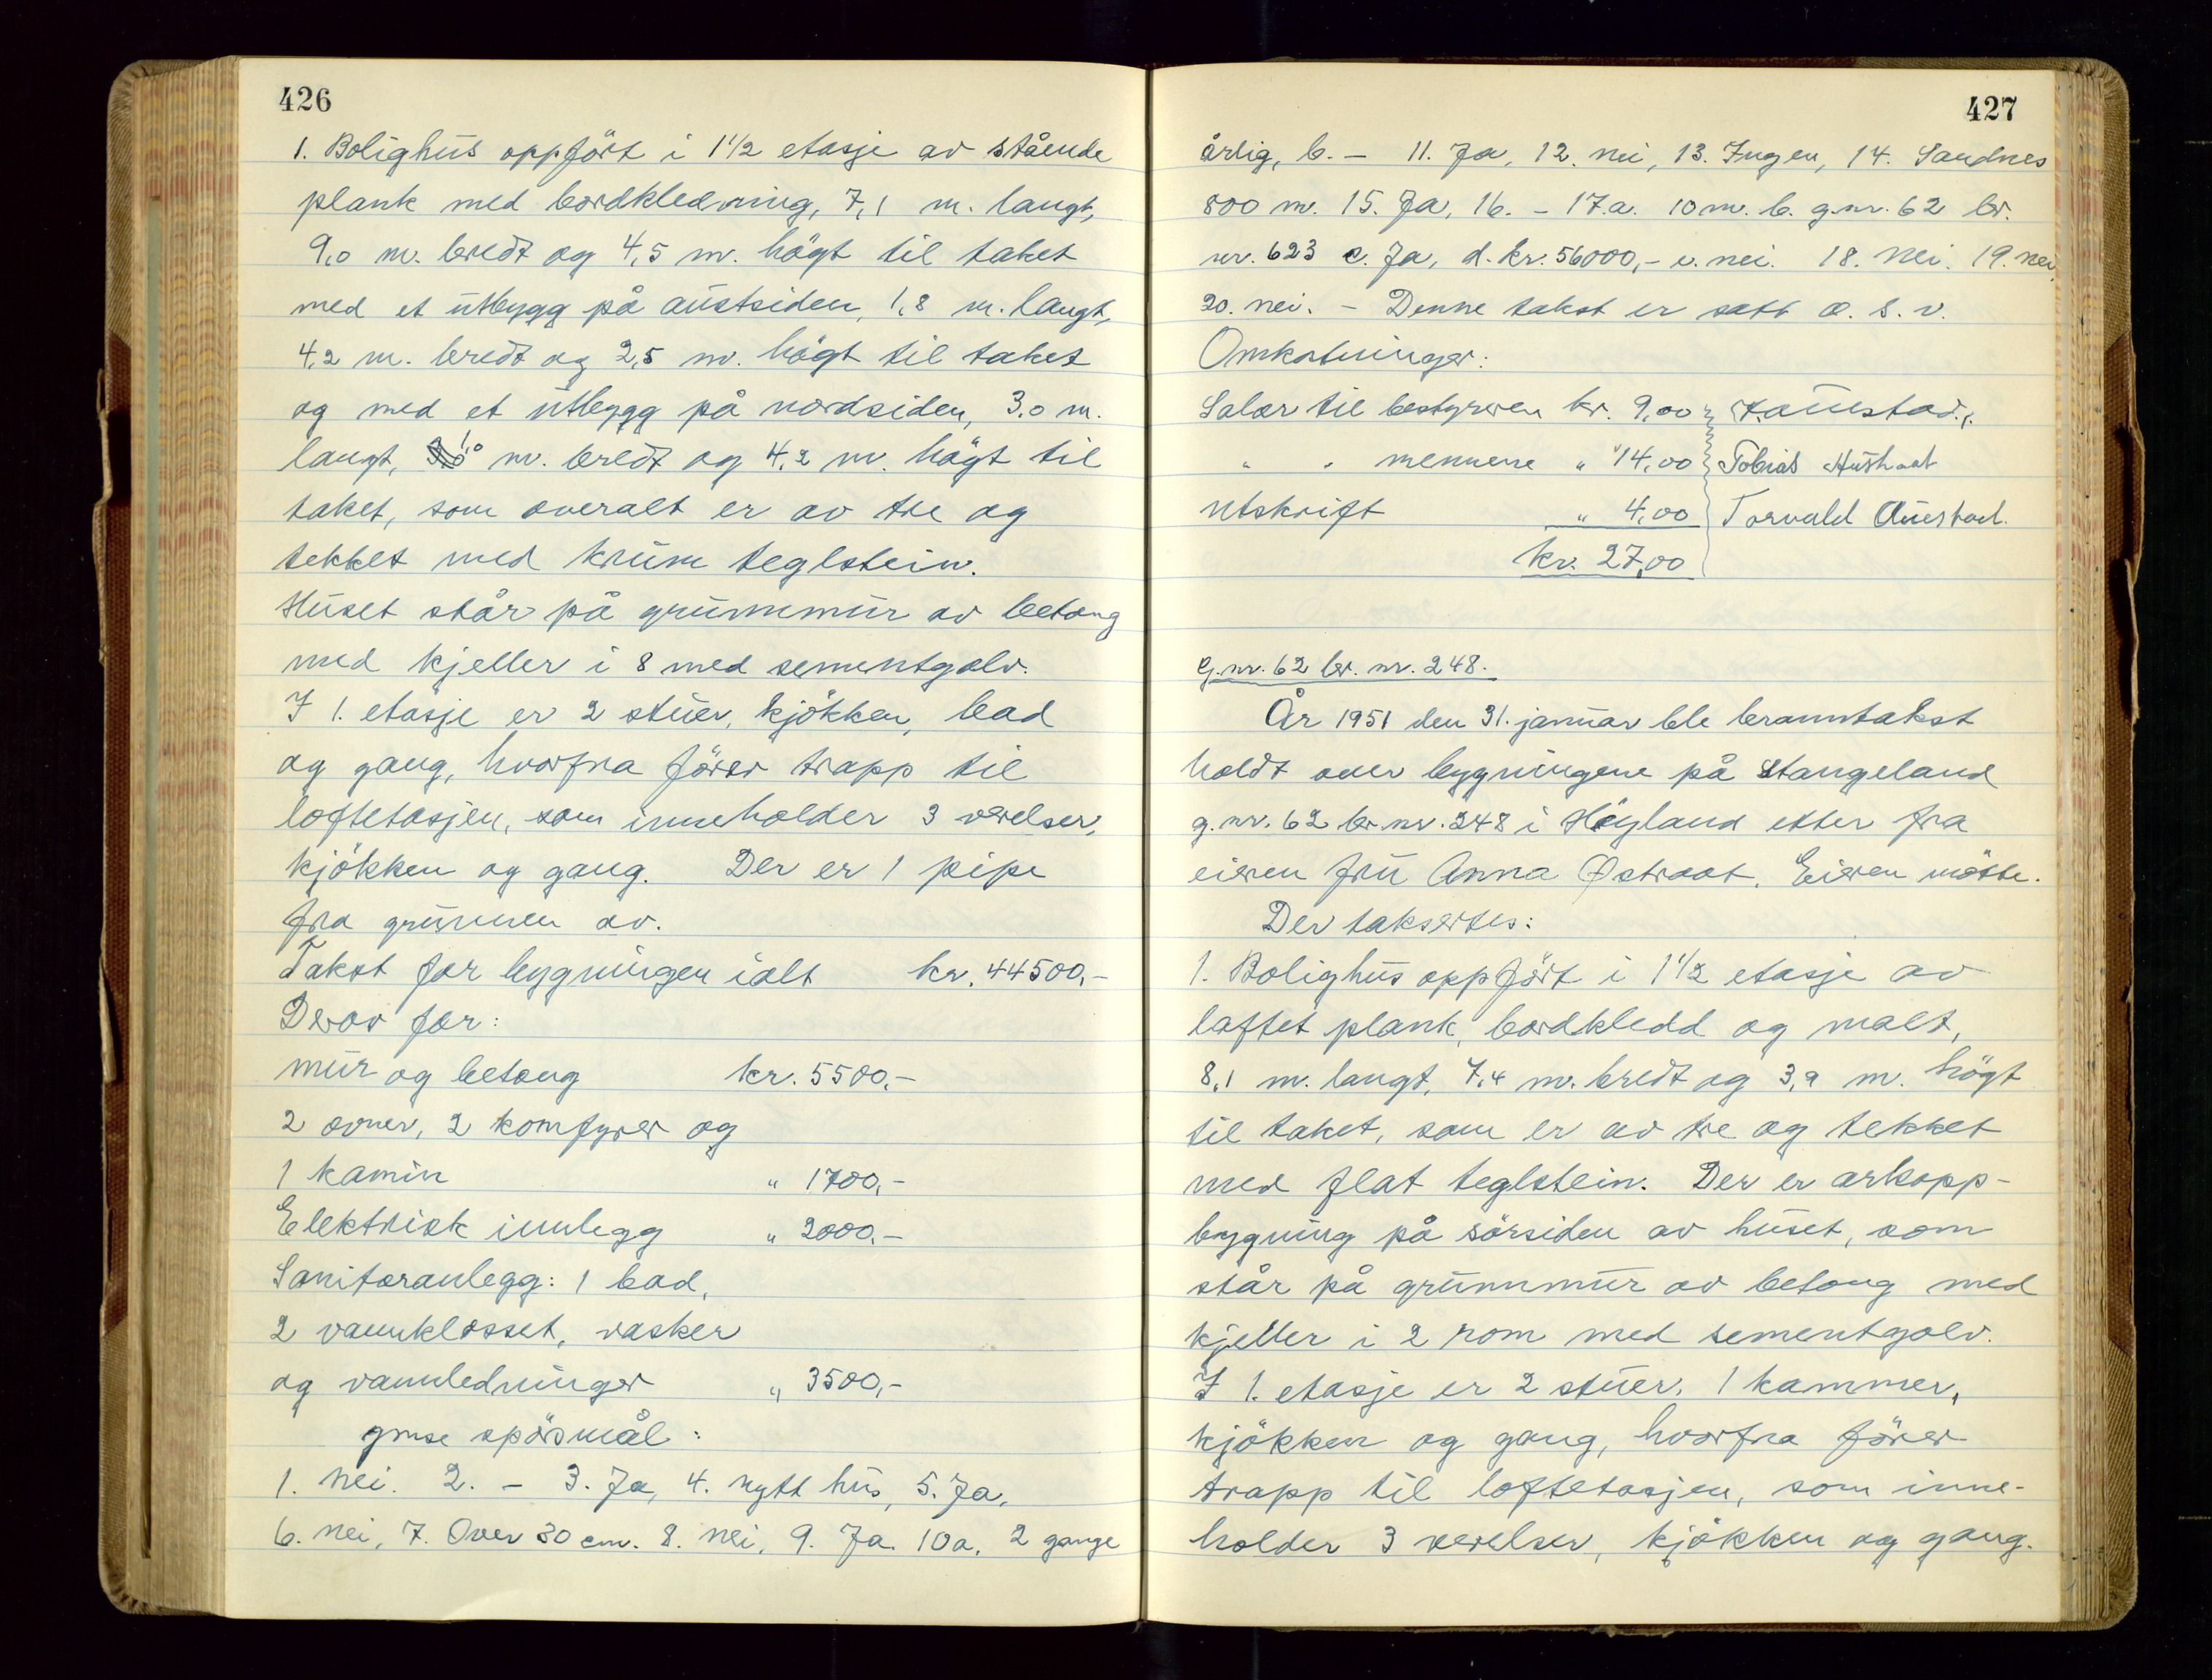 426
1. Bolighus oppfört i 1 1/2 etasje av stående
plank med bordkledning, 7,1 m. langt,
9,0 m. bredt og 4,5 m. högt til taket
med et utbygg på austsiden, 1,8 m. langt,
4,2 m. bredt og 2,5 m. högt til taket
og med et utbygg på nordsiden, 3,0 m.
langt, 1,0 m. bredt og 4,2 m. högt til
taket, som overalt er av tre og
tekket med krum teglstein.
Huset står på grunnmur av betong
med kjeller i 8 med sementgolv.
I 1. etasje er 2 stuer, kjökken, bad
og gang, hvorfra förer trapp til
loftetasjen, som inneholder 3 værelser,
kjökken og gang. Der er 1 pipe
fra grunnen av.
Takst for bygningen ialt kr. 44500,-
Derav for:
mur og betong kr. 5500,-
2 ovner, 2 komfyrer og
1 kamin " 1700,-
Elektrisk innlegg " 2000,-
Sanitæranlegg: 1 bad,
2 vannklosset, vasker
og vannledninger " 3500,-
gmse spörsmål:
1. Nei. 2. - 3. Ja, 4. nytt hus, 5. Ja,
6. nei, 7. Over 30 cm. 8. nei, 9. Ja. 10a. 2 gange
427
årlig, b. - 11. Ja, 12. nei, 13. Ingen, 14. Sandnes
800 m. 15. Ja, 16. - 17.a. 10 m. b. g.nr. 62 br.
nr. 623 c. Ja, d. kr. 56000,- e. nei. 18. Nei. 19. nei,
20. nei. - Denne takst er satt o. s. v.
Omkostninger:
Salær til bestyreren kr. 9,00
" " mennene " 14,00 Tobias
Utskrift " 4,00 Torvald Auestad.
kr. 27,00
G.nr. 62 br. nr. 248.
År 1951 den 31. januar ble branntakst
holdt over bygningene på Stangeland
g.nr. 62 br.nr. 248 i Höyland etter fra
eieren fru Anna Østraat. Eieren mötte.
Der taksertes:
1. Bolighus oppfört i 1 1/2 etasje av
laftet plank, bordkledd og malt,
8,1 m. langt, 7,4 m. bredt og 3,9 m. högt
til taket, som er av tre og tekket
med flat teglstein. Der er arkopp-
bygning på sörsiden av huset, som
står på grunnmur av betong med
kjeller i 2 rom med sementgolv.
I 1. etasje er 2 stuer, 1 kammer,
kjökken og gang, hvorfra förer
trapp til loftetasjen, som inne-
holder 3 værelser, kjökken og gang.